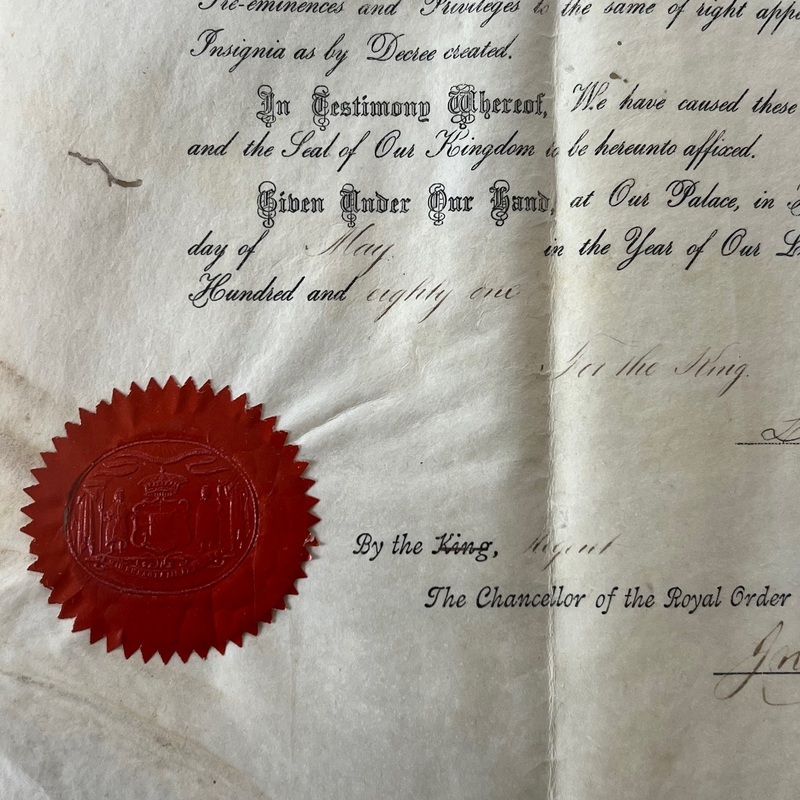 Pre-eminences and Privileges to the same of right
Insignia as by Decree created.
In Testimony Whereof, We have caused these
and the Seal of Our Kingdom to be hereunto affixed.
Given Under Our Hand, at Our Palace, in
day of May in the Year of Our
Hundred and eighty one
For the King.
By the King, Regent
The Chancellor of the Royal Order